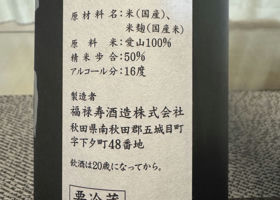 原材料名：米(国産)、
米麹(国産米)
原料米：愛山100%
精米歩合：50%
アルコール分：16度
製造者
福禄寿酒造株式会社
秋田県南秋田郡五城目町
字下夕町48番地
飲酒は20歳になってから。
要冷蔵